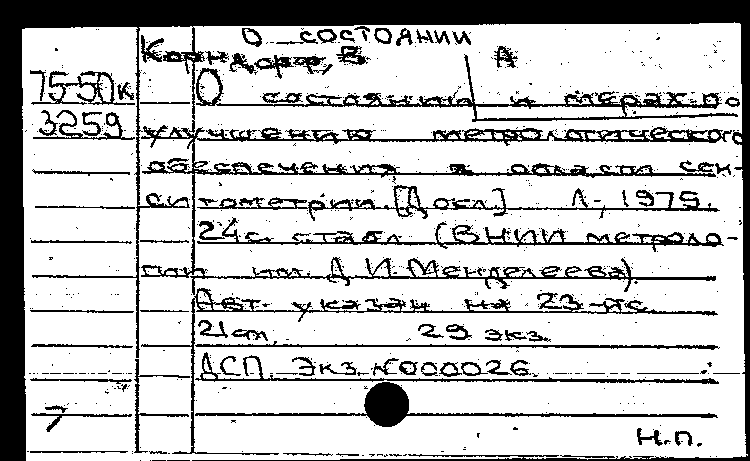 О состоянии
Корндорф, В А
75-50к О состоянии и мерах по
3259 улучшению метрологического
обеспечения в области сен-
ситометрии. [Докл.] Л., 1975.
24с. с табл. (ВНИИ метроло-
гии им. Д. И. Менделеева).
Авт. указан на 23-й с.
21см. 29 экз.
ДСП. Экз. №000026.
Н.п.